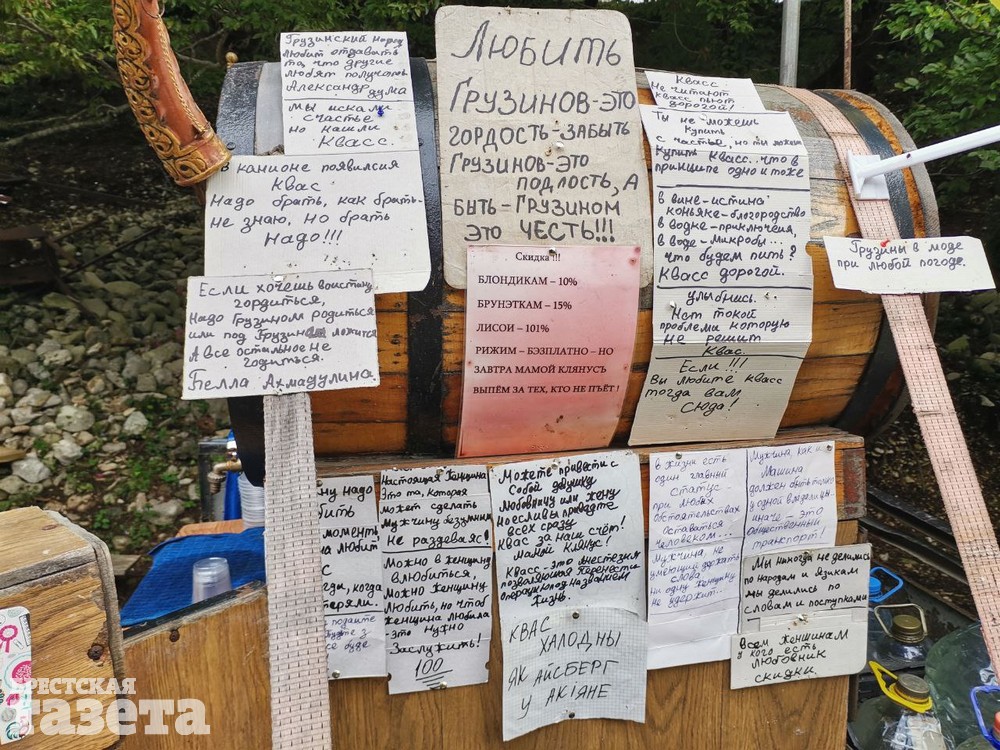 Грузинский народ
любит отдавать
то, что другие
любят получать
Александр дума
мы искали
счастье
но нашли
Квасс.
в канионе появился
Квас
Надо брать, как брать-
не знаю, но брать
Надо!!!
Если хочешь воистину
гордиться,
Надо Грузином родиться
или под Грузином ложится
А все остальное не
годиться.
Белла Ахмадулина
Любить
Грузинов-это
гордость-забыть
Грузинов-это
подлость, а
быть-Грузином
это честь!!!
Скидка !!!
БЛОНДИКАМ – 10%
БРУНЭТКАМ – 15%
ЛИСОИ – 101%
РИЖИМ – БЭЗПЛАТНО – НО
ЗАВТРА МАМОЙ КЛЯНУСЪ
ВЫПЁМ ЗА ТЕХ, КТО НЕ ПЪЁТ !
Квасс
Не читают
квасс пьют
дорогой!
Ты не можешь
Купить
счастье, но ты можеш
Купить Квасс.. что в
принципе одно и тоже
в вине-истина
коньяке-благородство
в водке-приключения,
в воде-микробы...
что будем пить?
Квасс дорогой.
Улыбнись..
Нет такой
проблема которую
не решит
Квасс.
Если!!!
Вы любите Квасс
тогда вам
Сюда!
Грузины в моде
при любой погоде.
ну надо
бить
моменты
на любит
с
гда, когда
теряли.
подайте
будте з
се буде
Настоящая Женщина
Это та, которая
может сделать
Мужчину безумним
Не раздеваяс!
Можно в женщину
влюбиться,
Можно женщину
любить, но чтоб
женщина любила
это нужно
Заслужить!
100
Можете привести с
Собой девушку
Любовницу или жену
но если вы приведте
всех сразу
Квас за наш счёт!
Мамой Клянус!
Квасс-это Анестезия
позволяющая перенести
операцию под названием
жизнь.
КВАС
ХАЛОДНЫ
ЯК АЙСБЕРГ
У АКІЯНЕ
в жизни есть
один главный
Статус -
при любых
обстоятельствах
оставаться
человеком...
Мужчина, не
умеющий держать
слова
ни одну женщину
не удержит..
Мужчина, как и
Машина
должен быть только
у одной владелицы.
иначе - это
общественный
транспорт!
Мы никогда не делились
по народам и языкам
мы делились по
словам и поступкам
Всем женщинам
у кого есть
любовник
скидки.
БРЕСТСКАЯ
газета